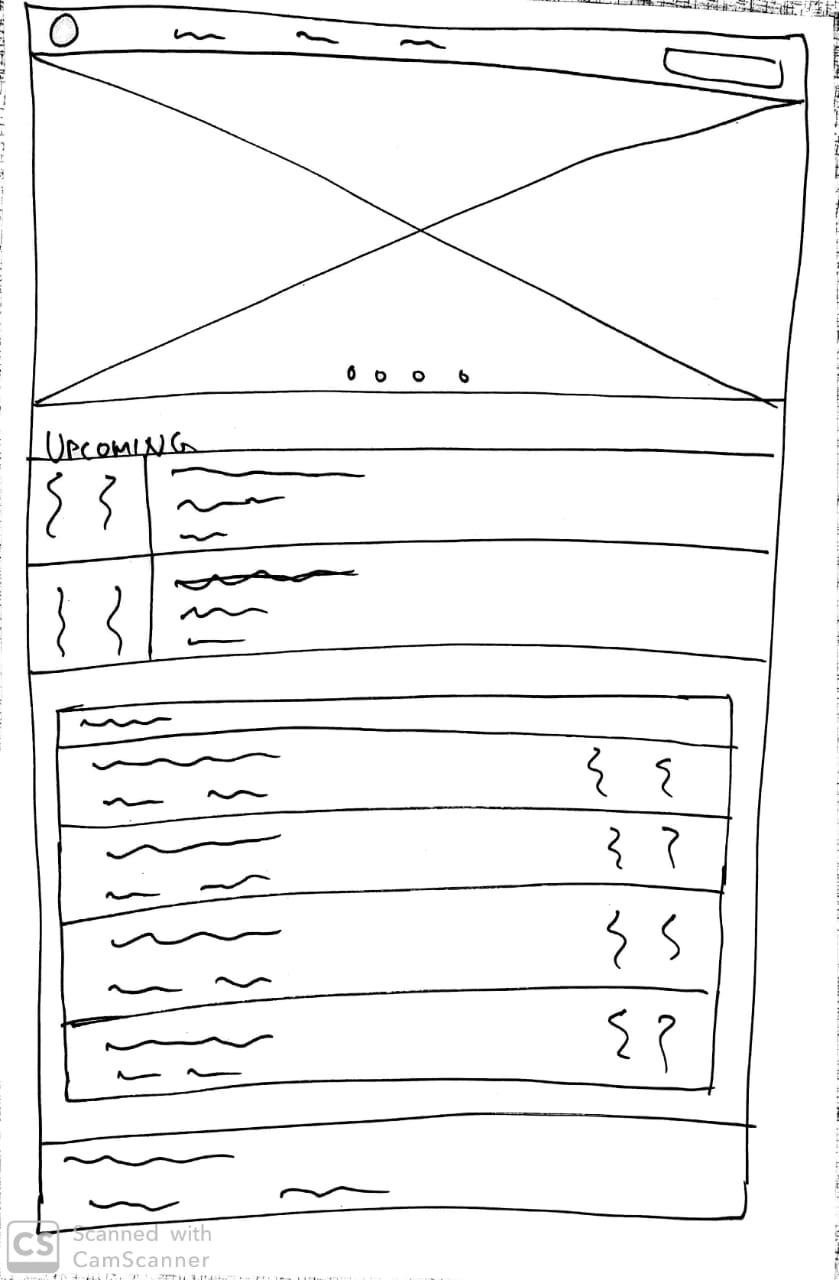 UPCOMING
CS Scanned with
CamScanner